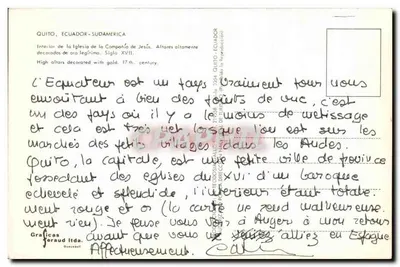 QUITO, ECUADOR-SUDAMERICA
Interior de la Iglesia de la Compañía de Jesús. Altares altamente
decorados de oro legítimo. Siglo XVII.
High altars decorated with gold. 17th. century.
L'Equateur est un pays vraiment pour nous
envoûtant à bien des points de vue, c'est
un des pays où il y a le moins de métissage
et cela est très net lorsque l'on est sur les
marchés des petits villages dans les Andes.
Quito, la capitale, est une petite ville de province
possédant des églises du XVI d'un baroque
échevelé et splendide, l'intérieur étant totale-
ment rouge et or (la carte ne rend malheureuse-
ment rien). Je pense vous voir à Angers à mon retour
avant que vous alliez en Espagne
Affectueusement.
Graficas
Feraud ltda.